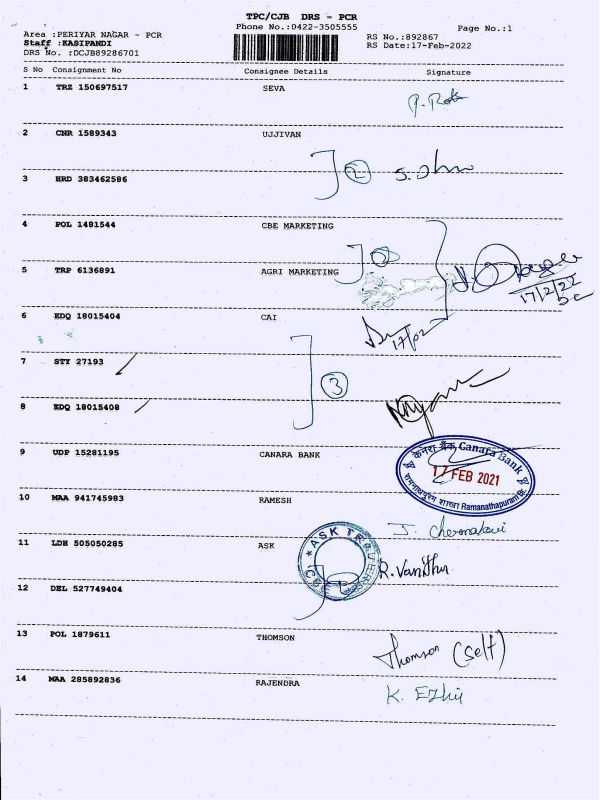 TPC/CJB DRS - PCR
Phone No.:0422-3505555
Page No.:1
Area :PERIYAR NAGAR - PCR
RS No.:892867
Staff :KASIPANDI
RS Date:17-Feb-2022
DRS No. :DCJB89286701
S No Consignment No Consignee Details Signature
1 TRZ 150697517 SEVA
2 CNR 1589343 UJJIVAN
2
3 HRD 383462586
4 POL 1481544 CBE MARKETING
2
5 TRP 6136891 AGRI MARKETING
17/2/22
6 EDQ 18015404 CAI
17/02
7 STY 27193
3
8 EDQ 18015408
9 UDP 15281195 CANARA BANK
केनरा बैंक Canara Bank
17 FEB 2021
Ramanathapuram Br.
10 MAA 941745983 RAMESH
11 LDH 505050285 ASK
ASK
R. Vanitha
12 DEL 527749404
13 POL 1879611 THOMSON
Thomson (self)
14 MAA 285892836 RAJENDRA
K. Ezhil